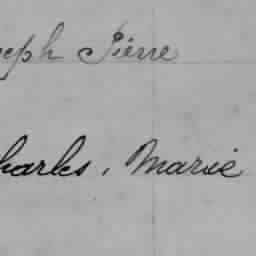 seph Pierre
harles, Marie